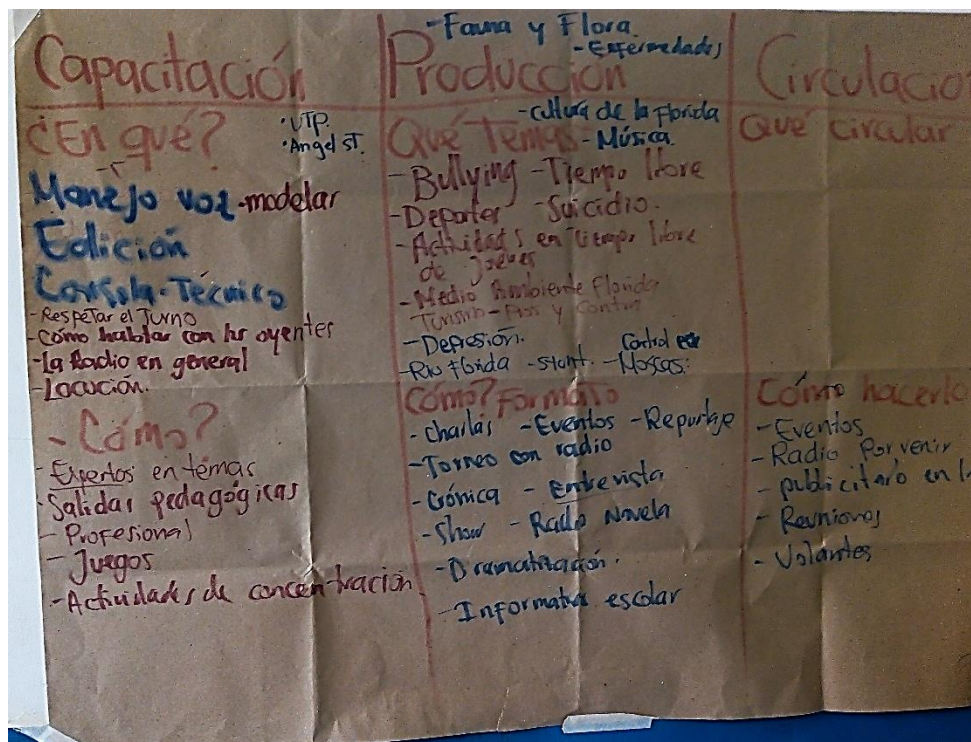 Capacitación
¿En qué?
·UTP.
·Angel ST.
Manejo voz-modelar
Edición
Consola-Técnico
-Respetar el Turno
-Cómo hablar con los oyentes
-La Radio en general
-Locución.
-Cómo?
-Expertos en temas
-Salidas pedagógicas
-Profesional
-Juegos
-Actividades de concentración
-Fauna y Flora.
-Enfermedades
Producción
-cultura de la Florida
Qué Temas -Música.
-Bullying -Tiempo libre
-Deportes -Suicidio.
-Actividades en tiempo libre
de jóvenes
-Medio Ambiente Florida
Turismo-Pros y Contra
-Depresión. Control
-Rio Florida -stunt. -Moscas.
Cómo? Formato
-charlas -Eventos -Reportaje
-Torneo con radio
-Crónica -Entrevista
-Show -Radio Novela
-Dramatización.
-Informativo escolar
Circulacio
Qué circular
Cómo hacerlo
-Eventos
-Radio Porvenir
-publicitario en l
-Reuniones
-Volantes